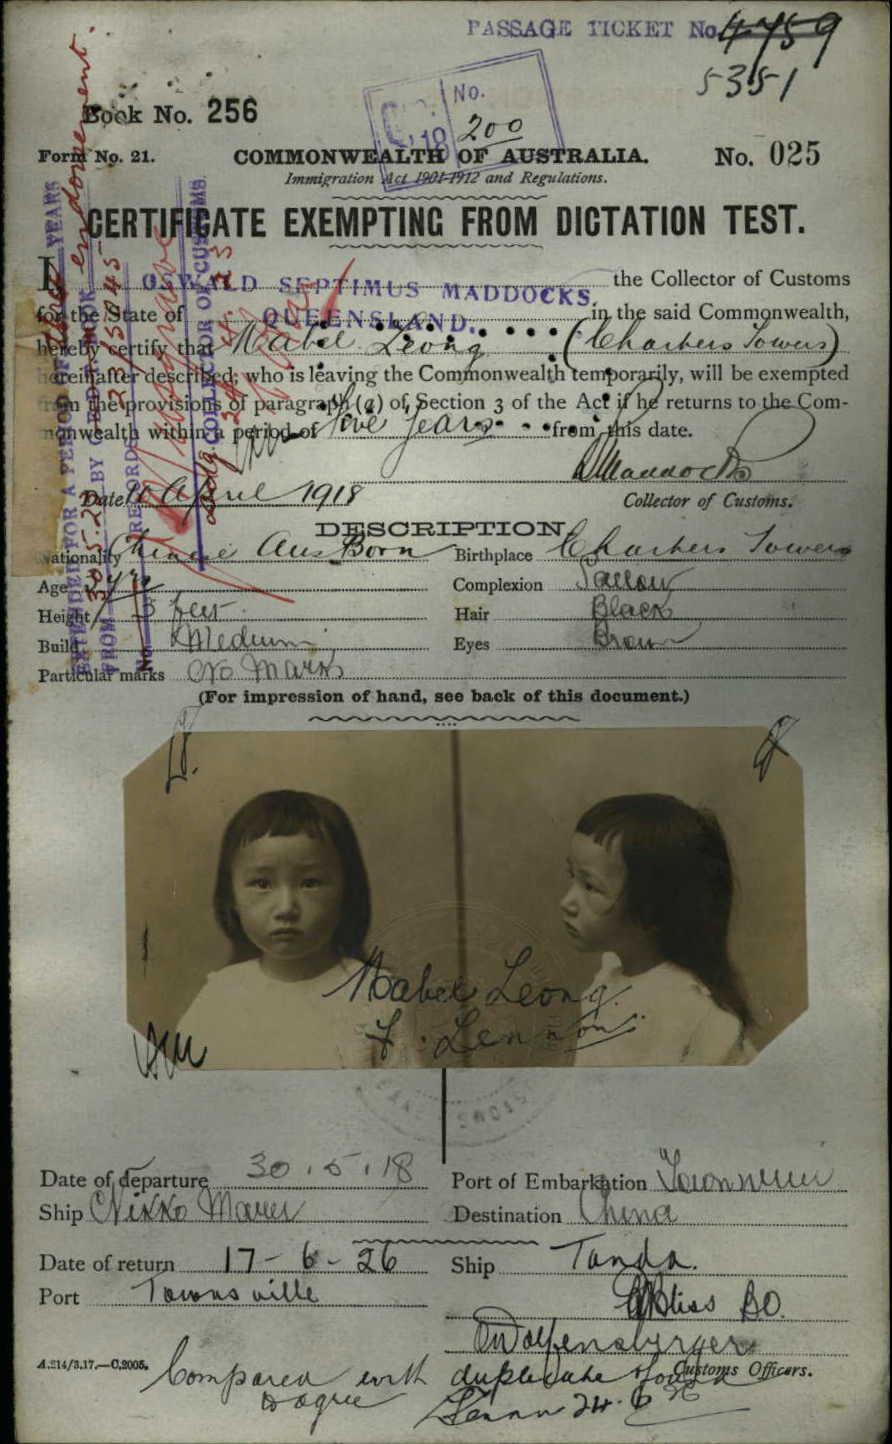 PASSAGE TICKET No. 4759
5351
Book No. 256
No.
200
Form No. 21.
COMMONWEALTH OF AUSTRALIA.
No. 025
Immigration Act 1901-1912 and Regulations.
CERTIFICATE EXEMPTING FROM DICTATION TEST.
I, OSWALD SEPTIMUS MADDOCKS the Collector of Customs
for the State of QUEENSLAND. in the said Commonwealth,
hereby certify that Mabel Leong (Charters Towers)
hereinafter described, who is leaving the Commonwealth temporarily, will be exempted
from the provisions of paragraph (a) of Section 3 of the Act if he returns to the Com-
monwealth within a period of five years from this date.
Maddocks
Date April 1918
Collector of Customs.
DESCRIPTION
Nationality Chinese Aus Born
Birthplace Charters Towers
Age 3 yrs
Complexion Sallow
Height 3 feet
Hair Black
Build Medium
Eyes Brown
Particular marks No Marks
(For impression of hand, see back of this document.)
Mabel Leong.
F. Lennon.
Date of departure 30.5.18
Port of Embarkation Townsville
Ship Nikko Maru
Destination China
Date of return 17-6-26
Ship Tanda.
Port Townsville
Bliss BO.
Wolfensberger
Customs Officers.
A.214/3.17.—C.2005.
Compared with duplicate found
to agree
24.6.26